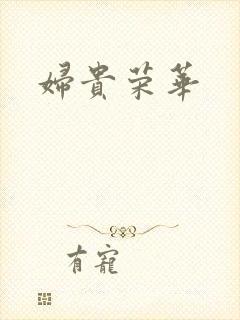 婦貴荣華
有寵